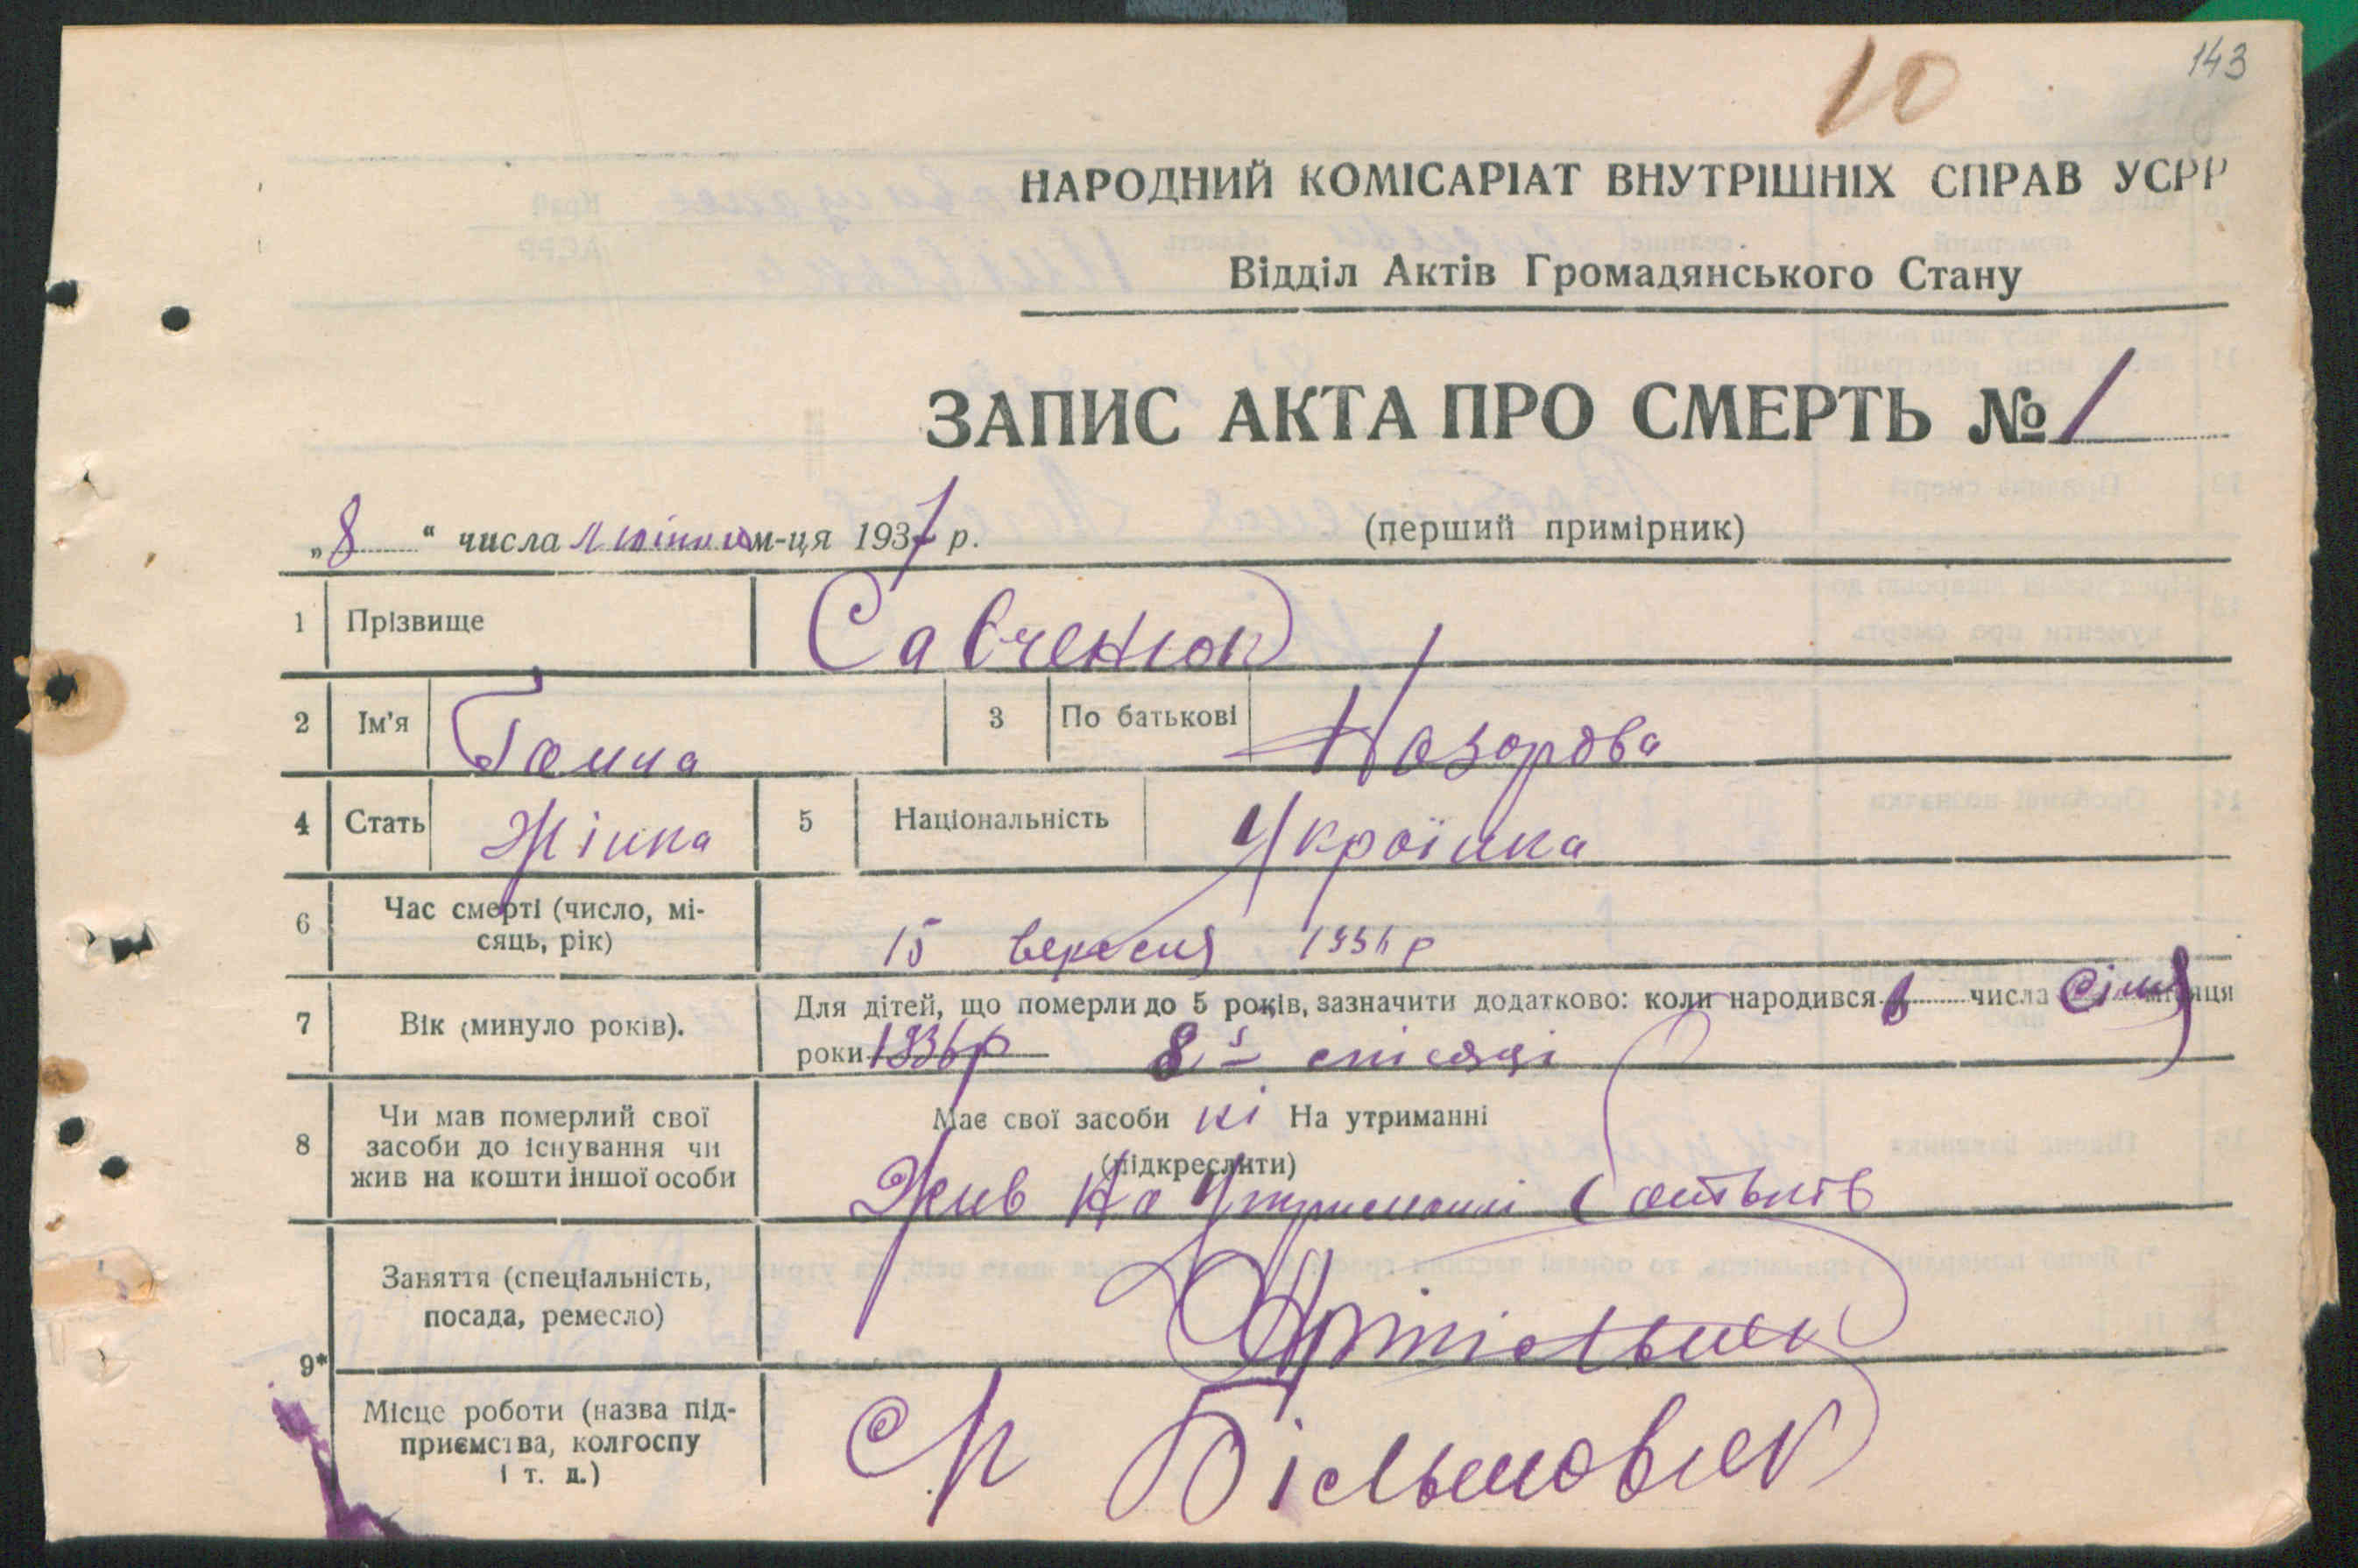 143
10
НАРОДНИЙ КОМІСАРІАТ ВНУТРІШНІХ СПРАВ УСРР
Відділ Актів Громадянського Стану
ЗАПИС АКТА ПРО СМЕРТЬ № 1
„8“ числа м-ця 1937 р. (перший примірник)
1 Прізвище Савченюк
2 Ім'я Ганна 3 По батькові Назорова
4 Стать Жінка 5 Національність Українка
6 Час смерті (число, мі-
сяць, рік) 15 вересня 1936 р
7 Вік (минуло років). Для дітей, що померли до 5 років, зазначити додатково: коли народився числа Січня місяця
роки 1936 р 8 місяці
8 Чи мав померлий свої
засоби до існування чи
жив на кошти іншої особи
Має свої засоби ні На утриманні
(підкреслити)
Жив на Утриманні батьків
9* Заняття (спеціальність,
посада, ремесло)
Місце роботи (назва під-
приємства, колгоспу
і т. д.)